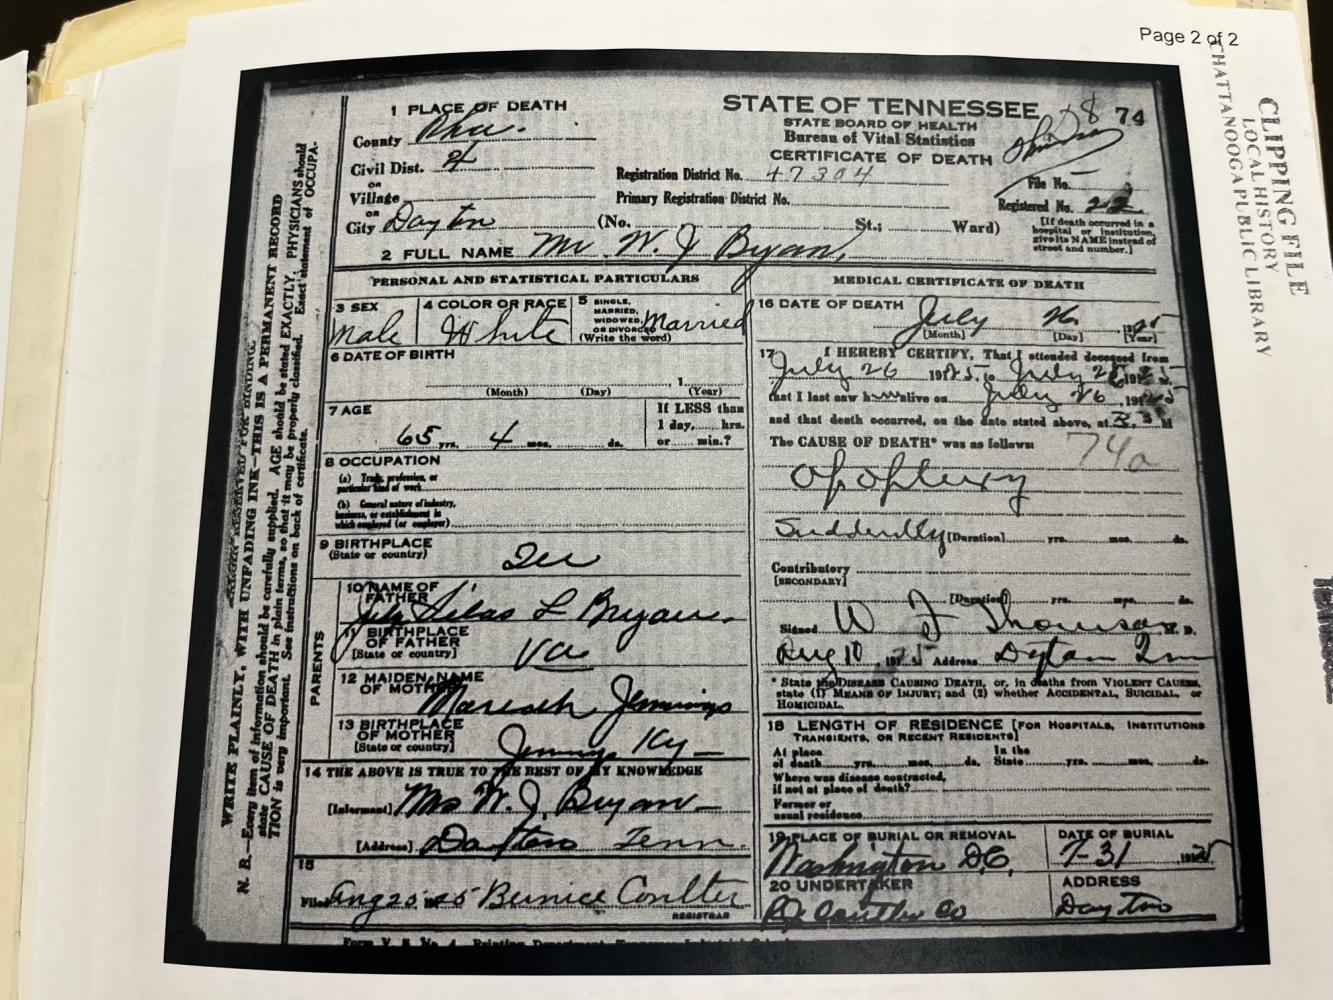 Page 2 of 2
CLIPPING FILE
LOCAL HISTORY
CHATTANOOGA PUBLIC LIBRARY
WRITE PLAINLY, WITH UNFADING INK—THIS IS A PERMANENT RECORD
N. B.—Every item of information should be carefully supplied. AGE should be stated EXACTLY. PHYSICIANS should
state CAUSE OF DEATH in plain terms, so that it may be properly classified. Exact statement of OCCUPA-
TION is very important. See instructions on back of certificate.
STATE OF TENNESSEE
STATE BOARD OF HEALTH
Bureau of Vital Statistics
CERTIFICATE OF DEATH
18 74
1 PLACE OF DEATH
County Rhea.
Civil Dist. 4
or
Village
or
City Dayton (No. St.; Ward)
Registration District No. 47304
Primary Registration District No.
File No.
Registered No. 22
[If death occurred in a
hospital or institution,
give its NAME instead of
street and number.]
2 FULL NAME Mr. W. J Bryan,
PERSONAL AND STATISTICAL PARTICULARS
3 SEX
Male
4 COLOR OR RACE
White
5 SINGLE,
MARRIED,
WIDOWED,
OR DIVORCED
(Write the word)
Married
6 DATE OF BIRTH
, 1
(Month) (Day) (Year)
7 AGE
65 yrs. 4 mos. ds.
If LESS than
1 day, hrs.
or min.?
8 OCCUPATION
(a) Trade, profession, or
particular kind of work
(b) General nature of industry,
business, or establishment in
which employed (or employer)
9 BIRTHPLACE
(State or country)
PARENTS
10 NAME OF
FATHER
Silas L Bryan.
11 BIRTHPLACE
OF FATHER
[State or country]
Va
12 MAIDEN NAME
OF MOTHER
Mariah Jennings
13 BIRTHPLACE
OF MOTHER
[State or country]
Jennings Ky
14 THE ABOVE IS TRUE TO THE BEST OF MY KNOWLEDGE
[Informant] Mrs W. J. Bryan
[Address] Dayton Tenn.
15
Filed Aug 25 1925 Bernice Coulter
REGISTRAR
MEDICAL CERTIFICATE OF DEATH
16 DATE OF DEATH
July 26 1925
[Month] [Day] [Year]
17 I HEREBY CERTIFY, That I attended deceased from
July 26 1925, to July 26 1925
that I last saw him alive on July 26, 1925
and that death occurred, on the date stated above, at M
The CAUSE OF DEATH* was as follows:
74a
Apoplexy
Suddenly [Duration] yrs. mos. ds.
Contributory
[SECONDARY]
[Duration] yrs. mos. ds.
Signed W F Thomison M. D.
Aug 10, 1925 Address Dayton Tenn
* State the DISEASE CAUSING DEATH, or, in deaths from VIOLENT CAUSES,
state (1) MEANS OF INJURY; and (2) whether ACCIDENTAL, SUICIDAL, or
HOMICIDAL.
18 LENGTH OF RESIDENCE [FOR HOSPITALS, INSTITUTIONS
TRANSIENTS, OR RECENT RESIDENTS]
At place
of death yrs. mos. ds.
In the
State yrs. mos. ds.
Where was disease contracted,
if not at place of death?
Former or
usual residence
19 PLACE OF BURIAL OR REMOVAL
Washington D.C.
DATE OF BURIAL
7-31, 1925
20 UNDERTAKER
Coulter Co
ADDRESS
Dayton